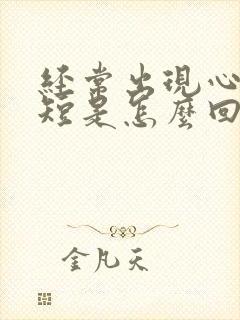 經常出現心
短是怎麼回
金凡天